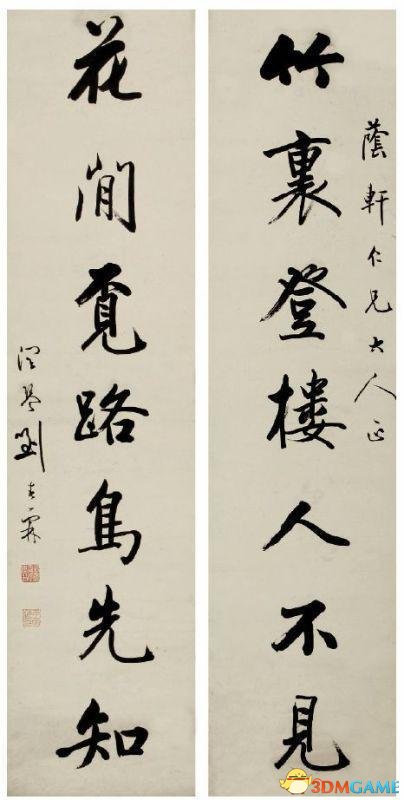 蔭軒仁兄大人正
竹裏登樓人不見
花閒覔路鳥先知
潤琴劉春霖
3DMGAME